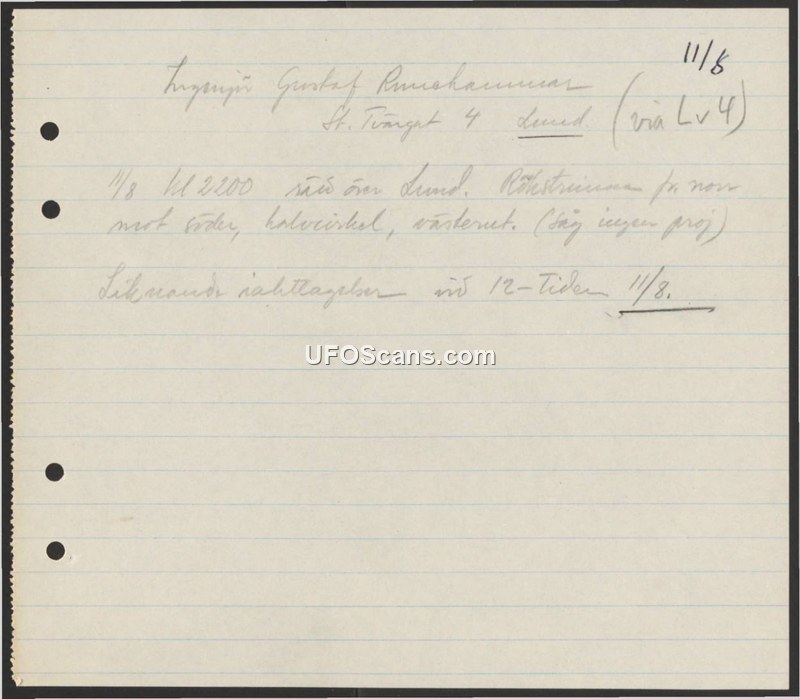 11/8
Ingenjör Gustaf Runehammar
St. Tvärgat 4 Lund (via Lv 4)
11/8 kl 2200 rätt över Lund. Rökstrimma fr norr
mot söder, halvcirkel, västerut. (Såg ingen proj)
Liknande iakttagelser vid 12-tiden 11/8.
UFOScans.com